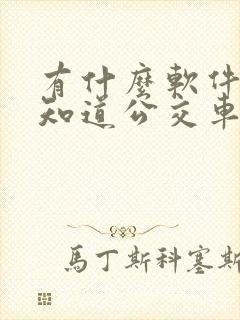 有什麼軟件
知道公交車
馬丁斯科塞斯